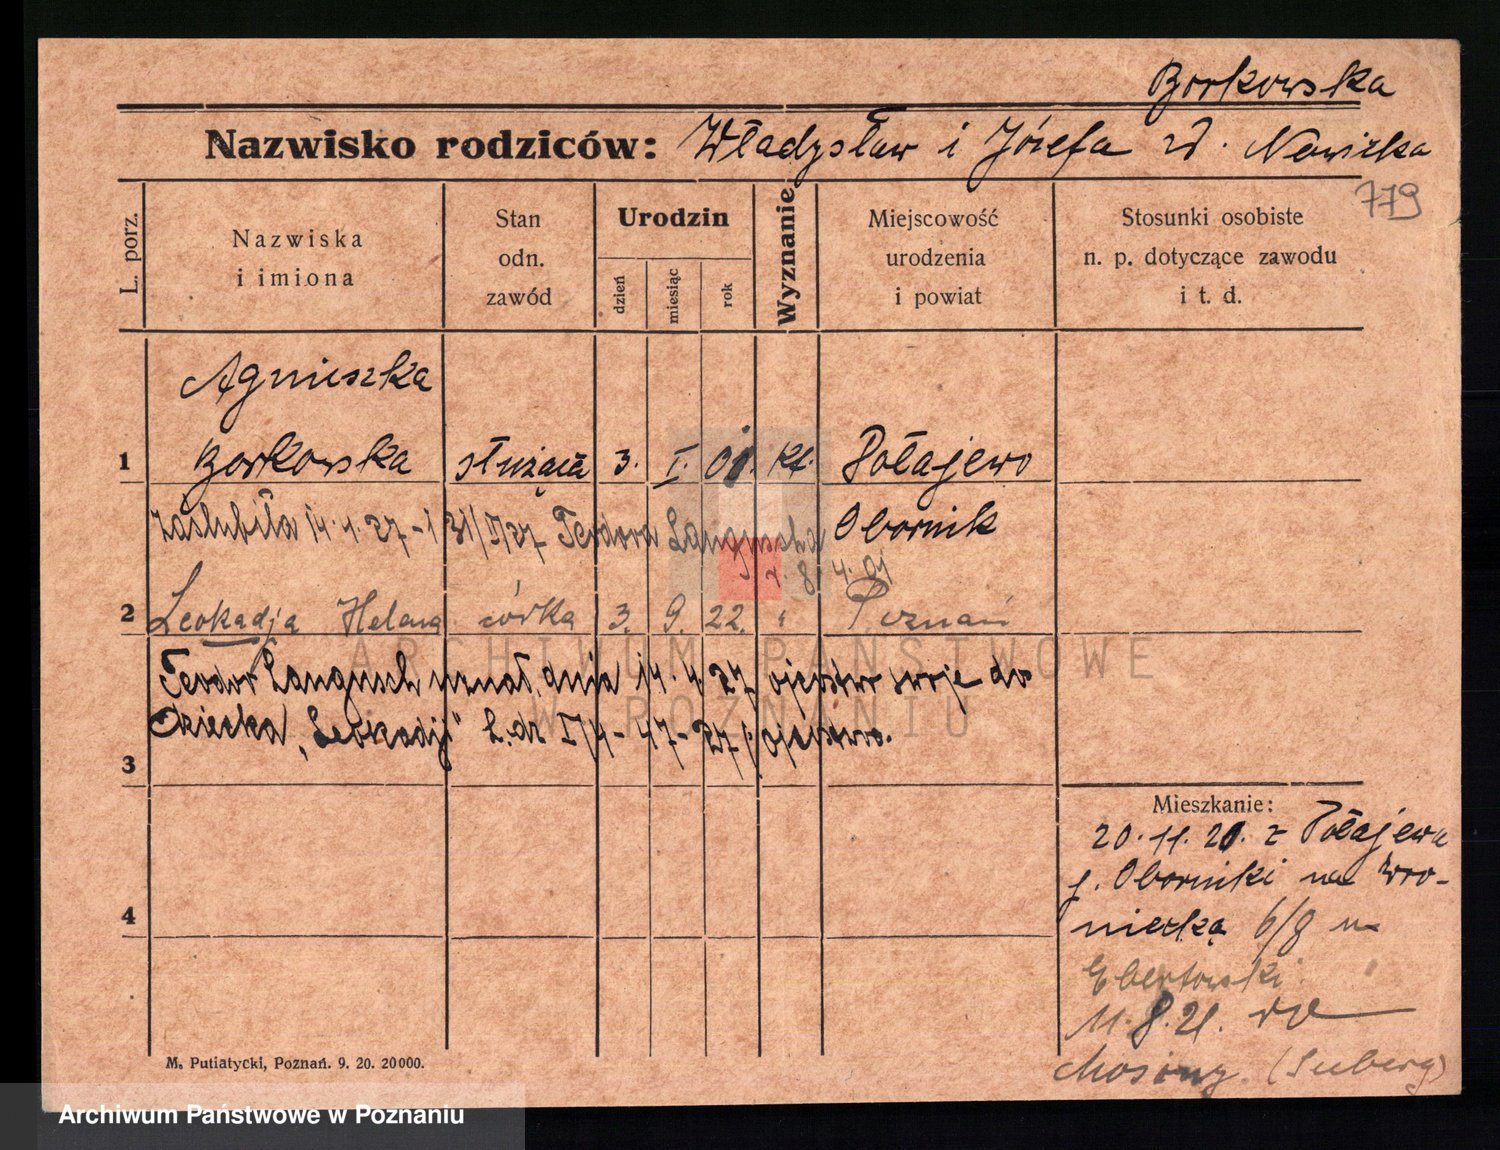 Borkowska
Nazwisko rodziców: Władysław i Józefa z d. Nowicka
779
L. porz.
Nazwiska
i imiona
Stan
odn.
zawód
Urodzin
dzień
miesiąc
rok
Wyznanie
Miejscowość
urodzenia
i powiat
Stosunki osobiste
n. p. dotyczące zawodu
i t. d.
Agnieszka
1 Borkowska służąca 3. I. 01. kt. Połajewo
zaślubiła 14.4.27 - 31/I/27 Teodora Languscha Obornik
r. 8 4. 01
2 Leokadja Helena córka 3. 9. 22. " Poznań
Teodor Langusch uznał dnia 14.4.27 ojcostwo swoje do
dziecka „Leokadji" L. dz I/4-47-27/. ojcostwo.
3
4
Mieszkanie:
20.11.20. z Połajewa
p. Oborniki na Wro-
niecką 6/8 u
11.8.21.
Mosiny. (Suberg)
M. Putiatycki, Poznań. 9. 20. 20000.
ARCHIWUM PAŃSTWOWE
W POZNANIU
Archiwum Państwowe w Poznaniu